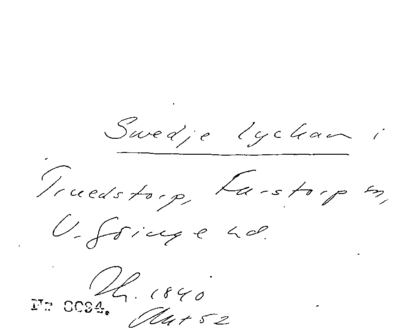 Swedje lyckan i
Truedstorp, Farstorp sn,
V. Göinge hd.
Jh. 1840
Akt 52
Nr 8094.